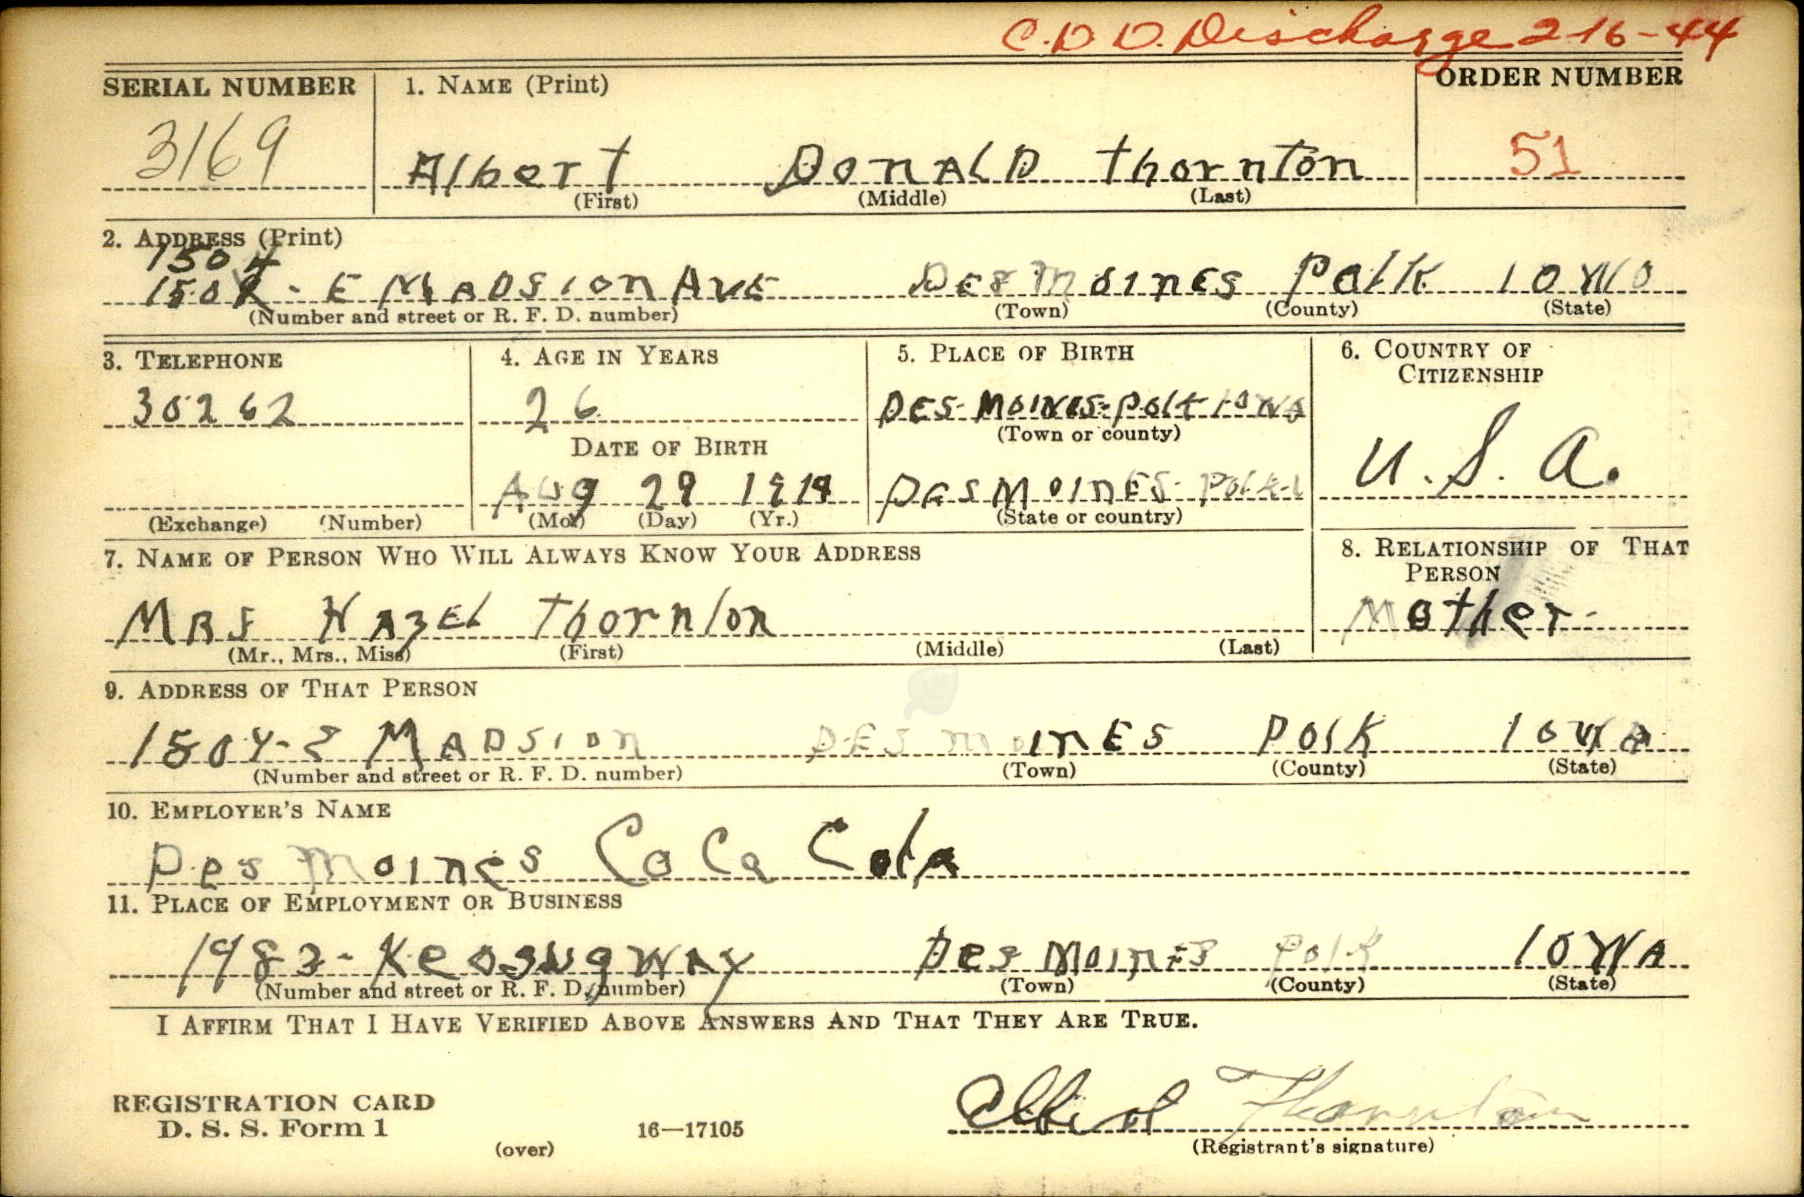 C.D.D. Discharge 2-16-44
SERIAL NUMBER 1. NAME (Print) ORDER NUMBER
3169 Albert DONALD Thornton 51
(First) (Middle) (Last)
2. ADDRESS (Print)
1504
E MADSION AVE DES MOINES POLK IOWA
(Number and street or R. F. D. number) (Town) (County) (State)
3. TELEPHONE 4. AGE IN YEARS 5. PLACE OF BIRTH 6. COUNTRY OF CITIZENSHIP
30262 26 DES-MOINES-POLK IOWA
DATE OF BIRTH (Town or county)
Aug 29 1914 DES MOINES-POLK-I U.S.A.
(Exchange) (Number) (Mo.) (Day) (Yr.) (State or country)
7. NAME OF PERSON WHO WILL ALWAYS KNOW YOUR ADDRESS 8. RELATIONSHIP OF THAT PERSON
MRS HAZEL Thornton Mother
(Mr., Mrs., Miss) (First) (Middle) (Last)
9. ADDRESS OF THAT PERSON
1504-E MADSION DES MOINES POLK IOWA
(Number and street or R. F. D. number) (Town) (County) (State)
10. EMPLOYER'S NAME
Des Moines Coca Cola
11. PLACE OF EMPLOYMENT OR BUSINESS
1983- KEOSUGWAY DES MOINES POLK IOWA
(Number and street or R. F. D. number) (Town) (County) (State)
I AFFIRM THAT I HAVE VERIFIED ABOVE ANSWERS AND THAT THEY ARE TRUE.
REGISTRATION CARD Albert Thornton
D. S. S. Form 1 16—17105
(over) (Registrant's signature)